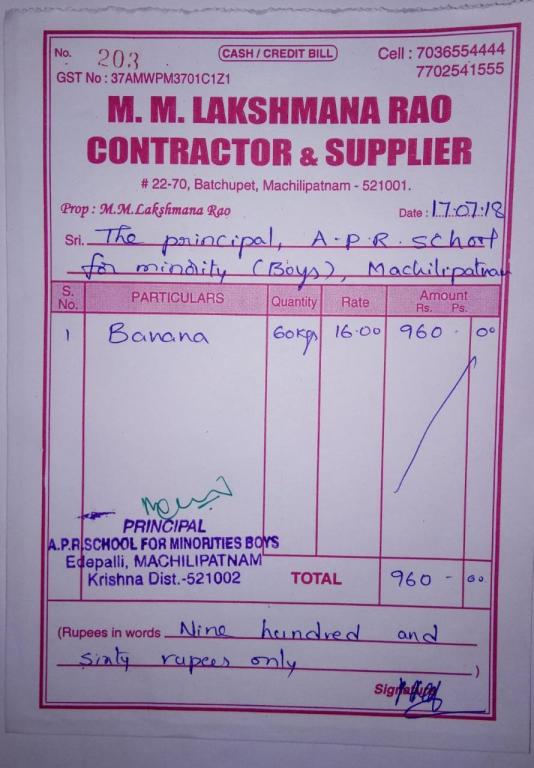 No. 203
CASH / CREDIT BILL
Cell : 7036554444
7702541555
GST No : 37AMWPM3701C1Z1
M. M. LAKSHMANA RAO
CONTRACTOR & SUPPLIER
# 22-70, Batchupet, Machilipatnam - 521001.
Prop : M.M.Lakshmana Rao
Date : 17.07.18
Sri. The principal, A.P.R. school
for minority (Boys), Machilipatnam
S. No. PARTICULARS Quantity Rate Amount Rs. Ps.
1 Banana 60kgs 16.00 960 . 00
PRINCIPAL
A.P.R.SCHOOL FOR MINORITIES BOYS
Edepalli, MACHILIPATNAM
Krishna Dist.-521002
TOTAL 960 - 00
(Rupees in words Nine hundred and
sixty rupees only )
Signature